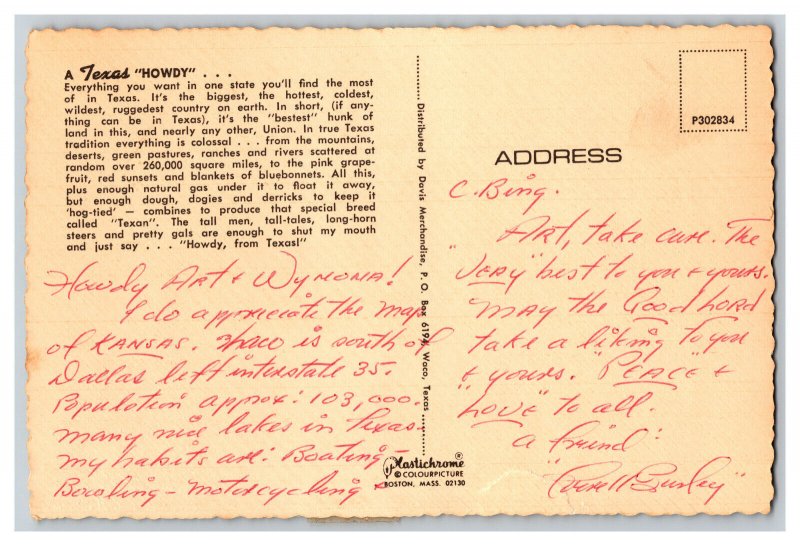 A Texas "HOWDY" . . .
Everything you want in one state you'll find the most
of in Texas. It's the biggest, the hottest, coldest,
wildest, ruggedest country on earth. In short, (if any-
thing can be in Texas), it's the "bestest" hunk of
land in this, and nearly any other, Union. In true Texas
tradition everything is colossal . . . from the mountains,
deserts, green pastures, ranches and rivers scattered at
random over 260,000 square miles, to the pink grape-
fruit, red sunsets and blankets of bluebonnets. All this,
plus enough natural gas under it to float it away,
but enough dough, dogies and derricks to keep it
'hog-tied' — combines to produce that special breed
called "Texan". The tall men, tall-tales, long-horn
steers and pretty gals are enough to shut my mouth
and just say . . . "Howdy, from Texas!"
Howdy Art & Wymona!
I do appreciate the map
of Kansas. Waco is south of
Dallas left interstate 35.
Population approx: 103,000.
Many nice lakes in Texas.
My habits are: Boating -
Bowling - Motorcycling
Distributed by Davis Merchandise, P. O. Box 6194, Waco, Texas
Plastichrome ®
© COLOURPICTURE
BOSTON, MASS. 02130
P302834
ADDRESS
C. Bing.
Art, take care. The
"Very" best to you & yours.
May the Good Lord
take a liking to you
& yours. "Peace" &
"Love" to all.
a friend:
"Everett Gurley"